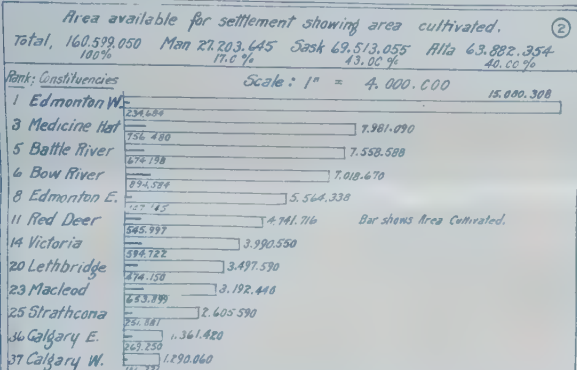 Area available for settlement showing area cultivated. 2
Total, 160.599.050 Man 27.203.645 Sask 69.513.055 Alta 63.882.354
100% 17.0% 43.00% 40.00%
Rank; Constituencies Scale: 1" = 4.000.000
1 Edmonton W. 15.080.308
234.684
3 Medicine Hat 7.981.090
756.480
5 Battle River 7.558.588
674.198
6 Bow River 7.018.670
894.584
8 Edmonton E. 5.564.338
11 Red Deer 4.741.716 Bar shows Area Cultivated.
545.997
14 Victoria 3.990.550
594.722
20 Lethbridge 3.497.590
474.150
23 Macleod 3.192.440
653.899
25 Strathcona 2.605.590
251.881
36 Calgary E. 1.361.420
269.250
37 Calgary W. 1.290.060